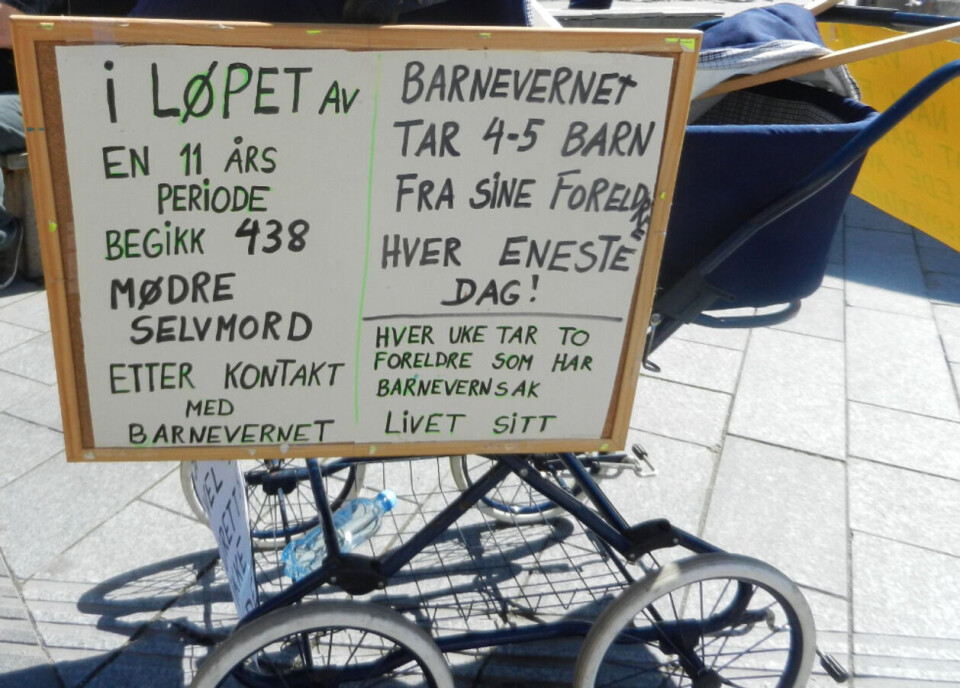 i LØPET AV
EN 11 ÅRS
PERiODE
BEGiKK 438
MØDRE
SELVMORD
ETTER KONTAKT
MED
BARNEVERNET
BARNEVERNEt
TAR 4-5 BARN
FRA SiNE FORELDRENE
HVER ENESTE
DAG!
HVER UKE TAR TO
FORELDRE SOM HAR
BARNEVERNSAK
LiVET SiTT